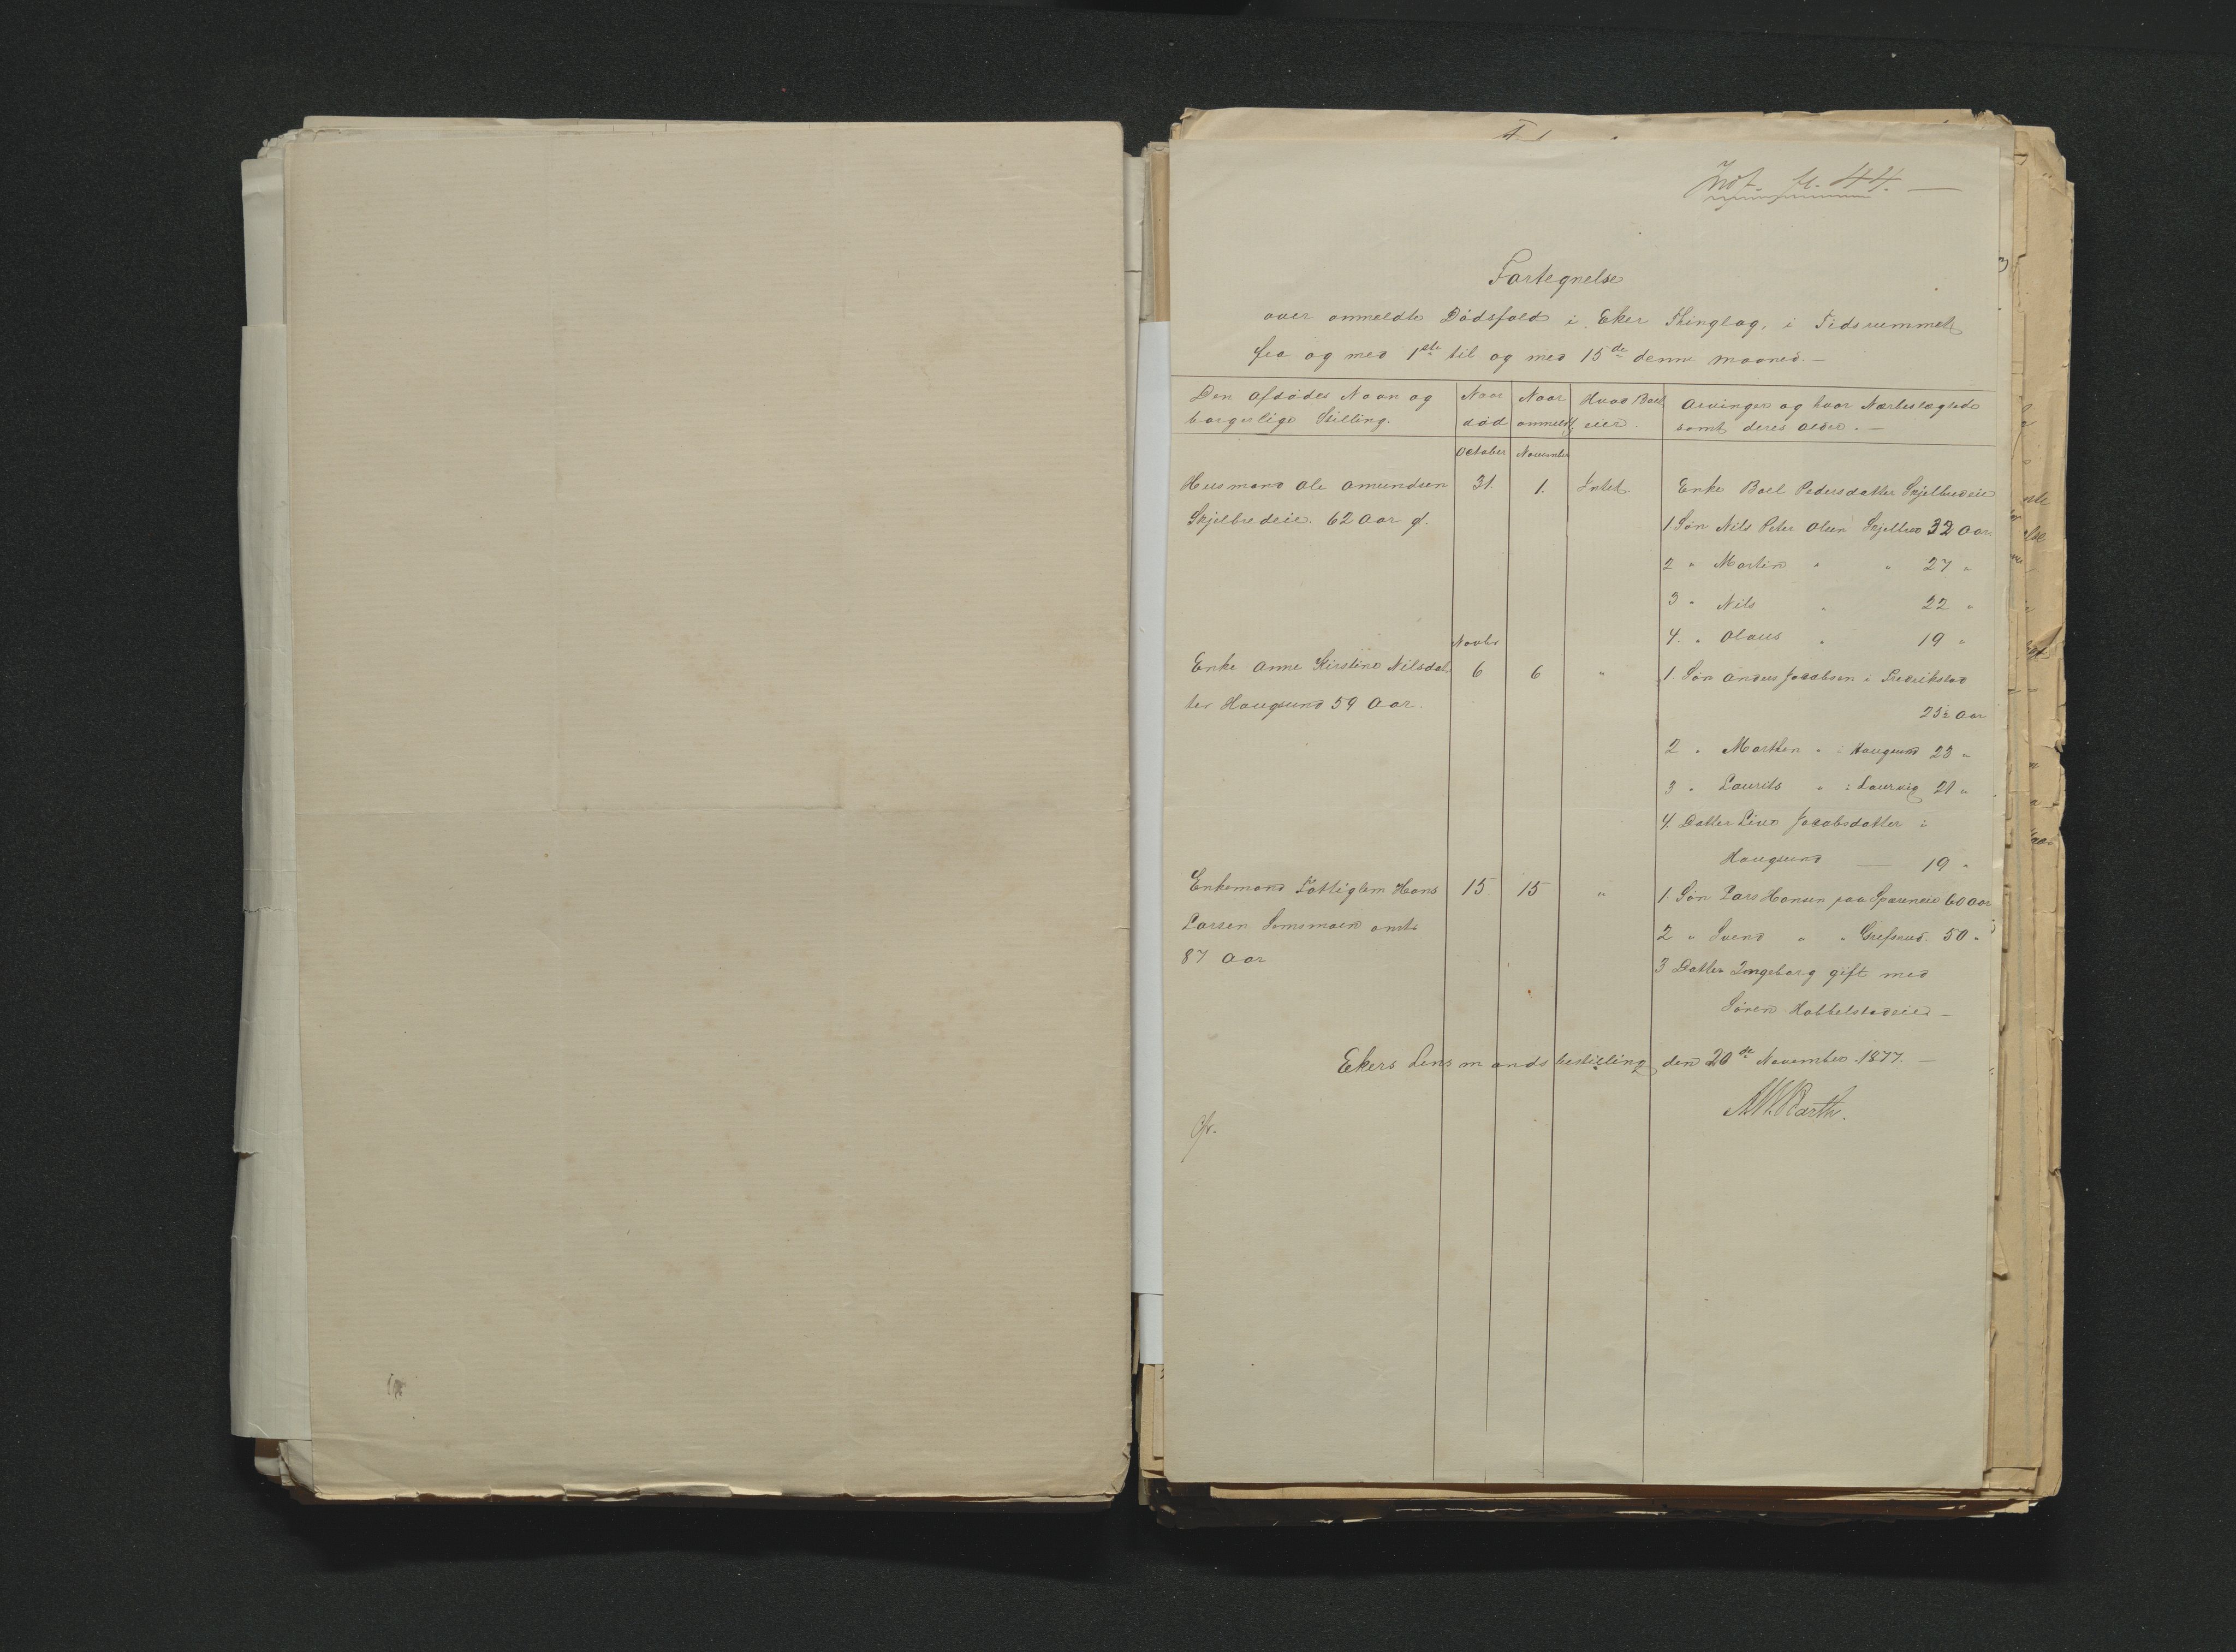 Indf. fl. 44. —
Fortegnelse
over anmeldte Dödsfald i Eker Thinglag, i Tidsrummet
fra og med 1ste til og med 15de denne Maaned. —
Den afdödes Navn og Naar Naar Hvad Boet Arvinger og hvor Nærbeslægtede
borgerlige Stilling. död anmeldt eier. samt deres Alder. —
October November
Husmand Ole Amundsen 31. 1. Intet. Enke Boel Pedersdatter Skjelbredeie
Skjelbredeie. 62 Aar gl. 1. Sön Nils Peter Olsen Skjelbred 32 Aar.
2 " Martin " " 27 "
3 " Nils " 22 "
Novbr 4. " Olaus " 19 "
Enke Anne Kirstine Nilsdat- 6 6 " 1. Sön Anders Jacobsen i Fredrikstad
ter Hougsund 59 Aar. 25½ Aar
2 " Marthin " i Hougsund 23 "
3 " Laurits " i Laurvig 21 "
4. Datter Live Jacobsdatter i
Hougsund — 19 "
Enkemand Fattiglem Hans 15. 15 " 1. Sön Lars Hansen paa 60 Aar
Larsen 2 " Svend " " Grefsrud. 50 "
87 Aar 3 Datter Ingeborg gift med
Sören Hobbelstadeie —
Ekers Lensmandsbestilling den 20de November 1877. —
Barth.